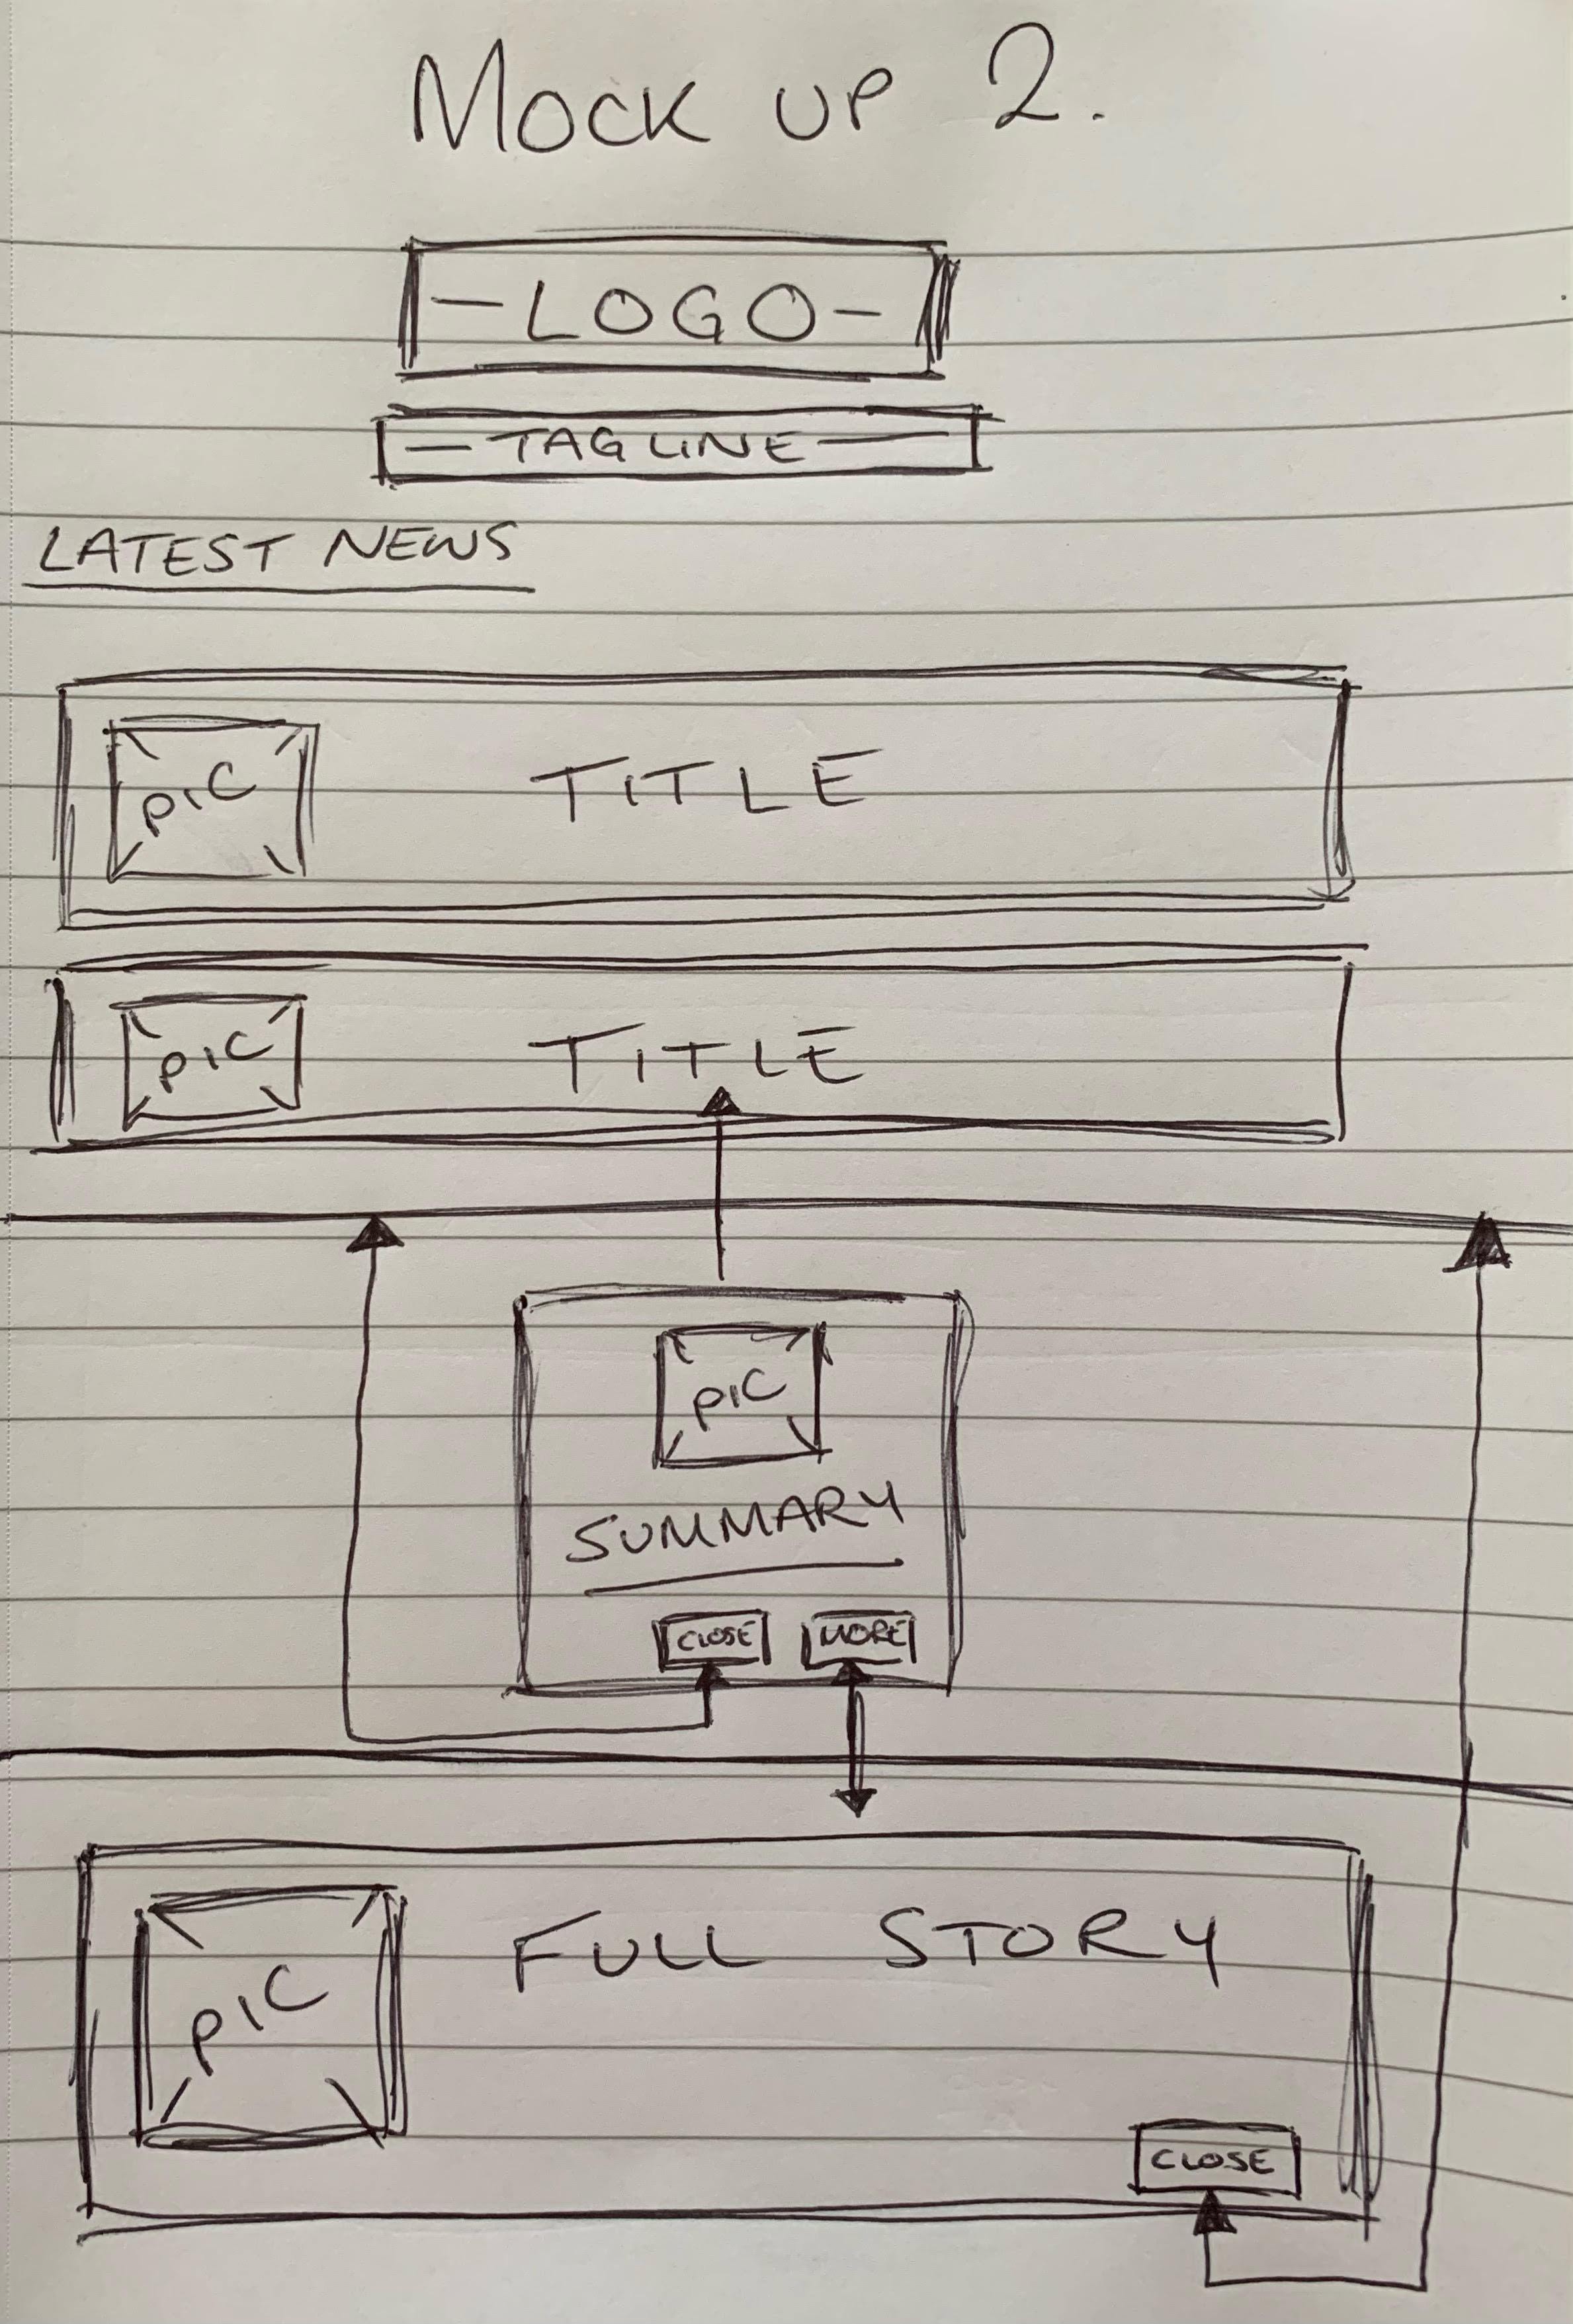 MOCK UP 2.
-LOGO-
- TAGLINE -
LATEST NEWS
PIC TITLE
PIC TITLE
PIC
SUMMARY
CLOSE MORE
PIC FULL STORY
CLOSE